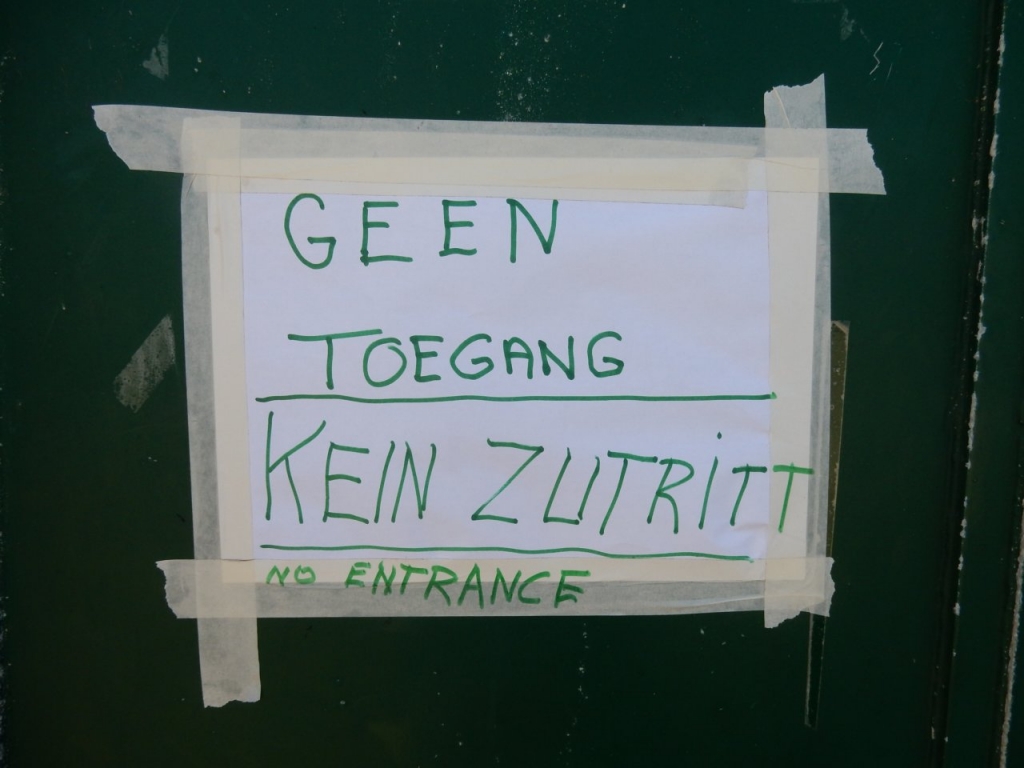 GEEN
TOEGANG
KEIN ZUTRiTT
NO ENTRANCE